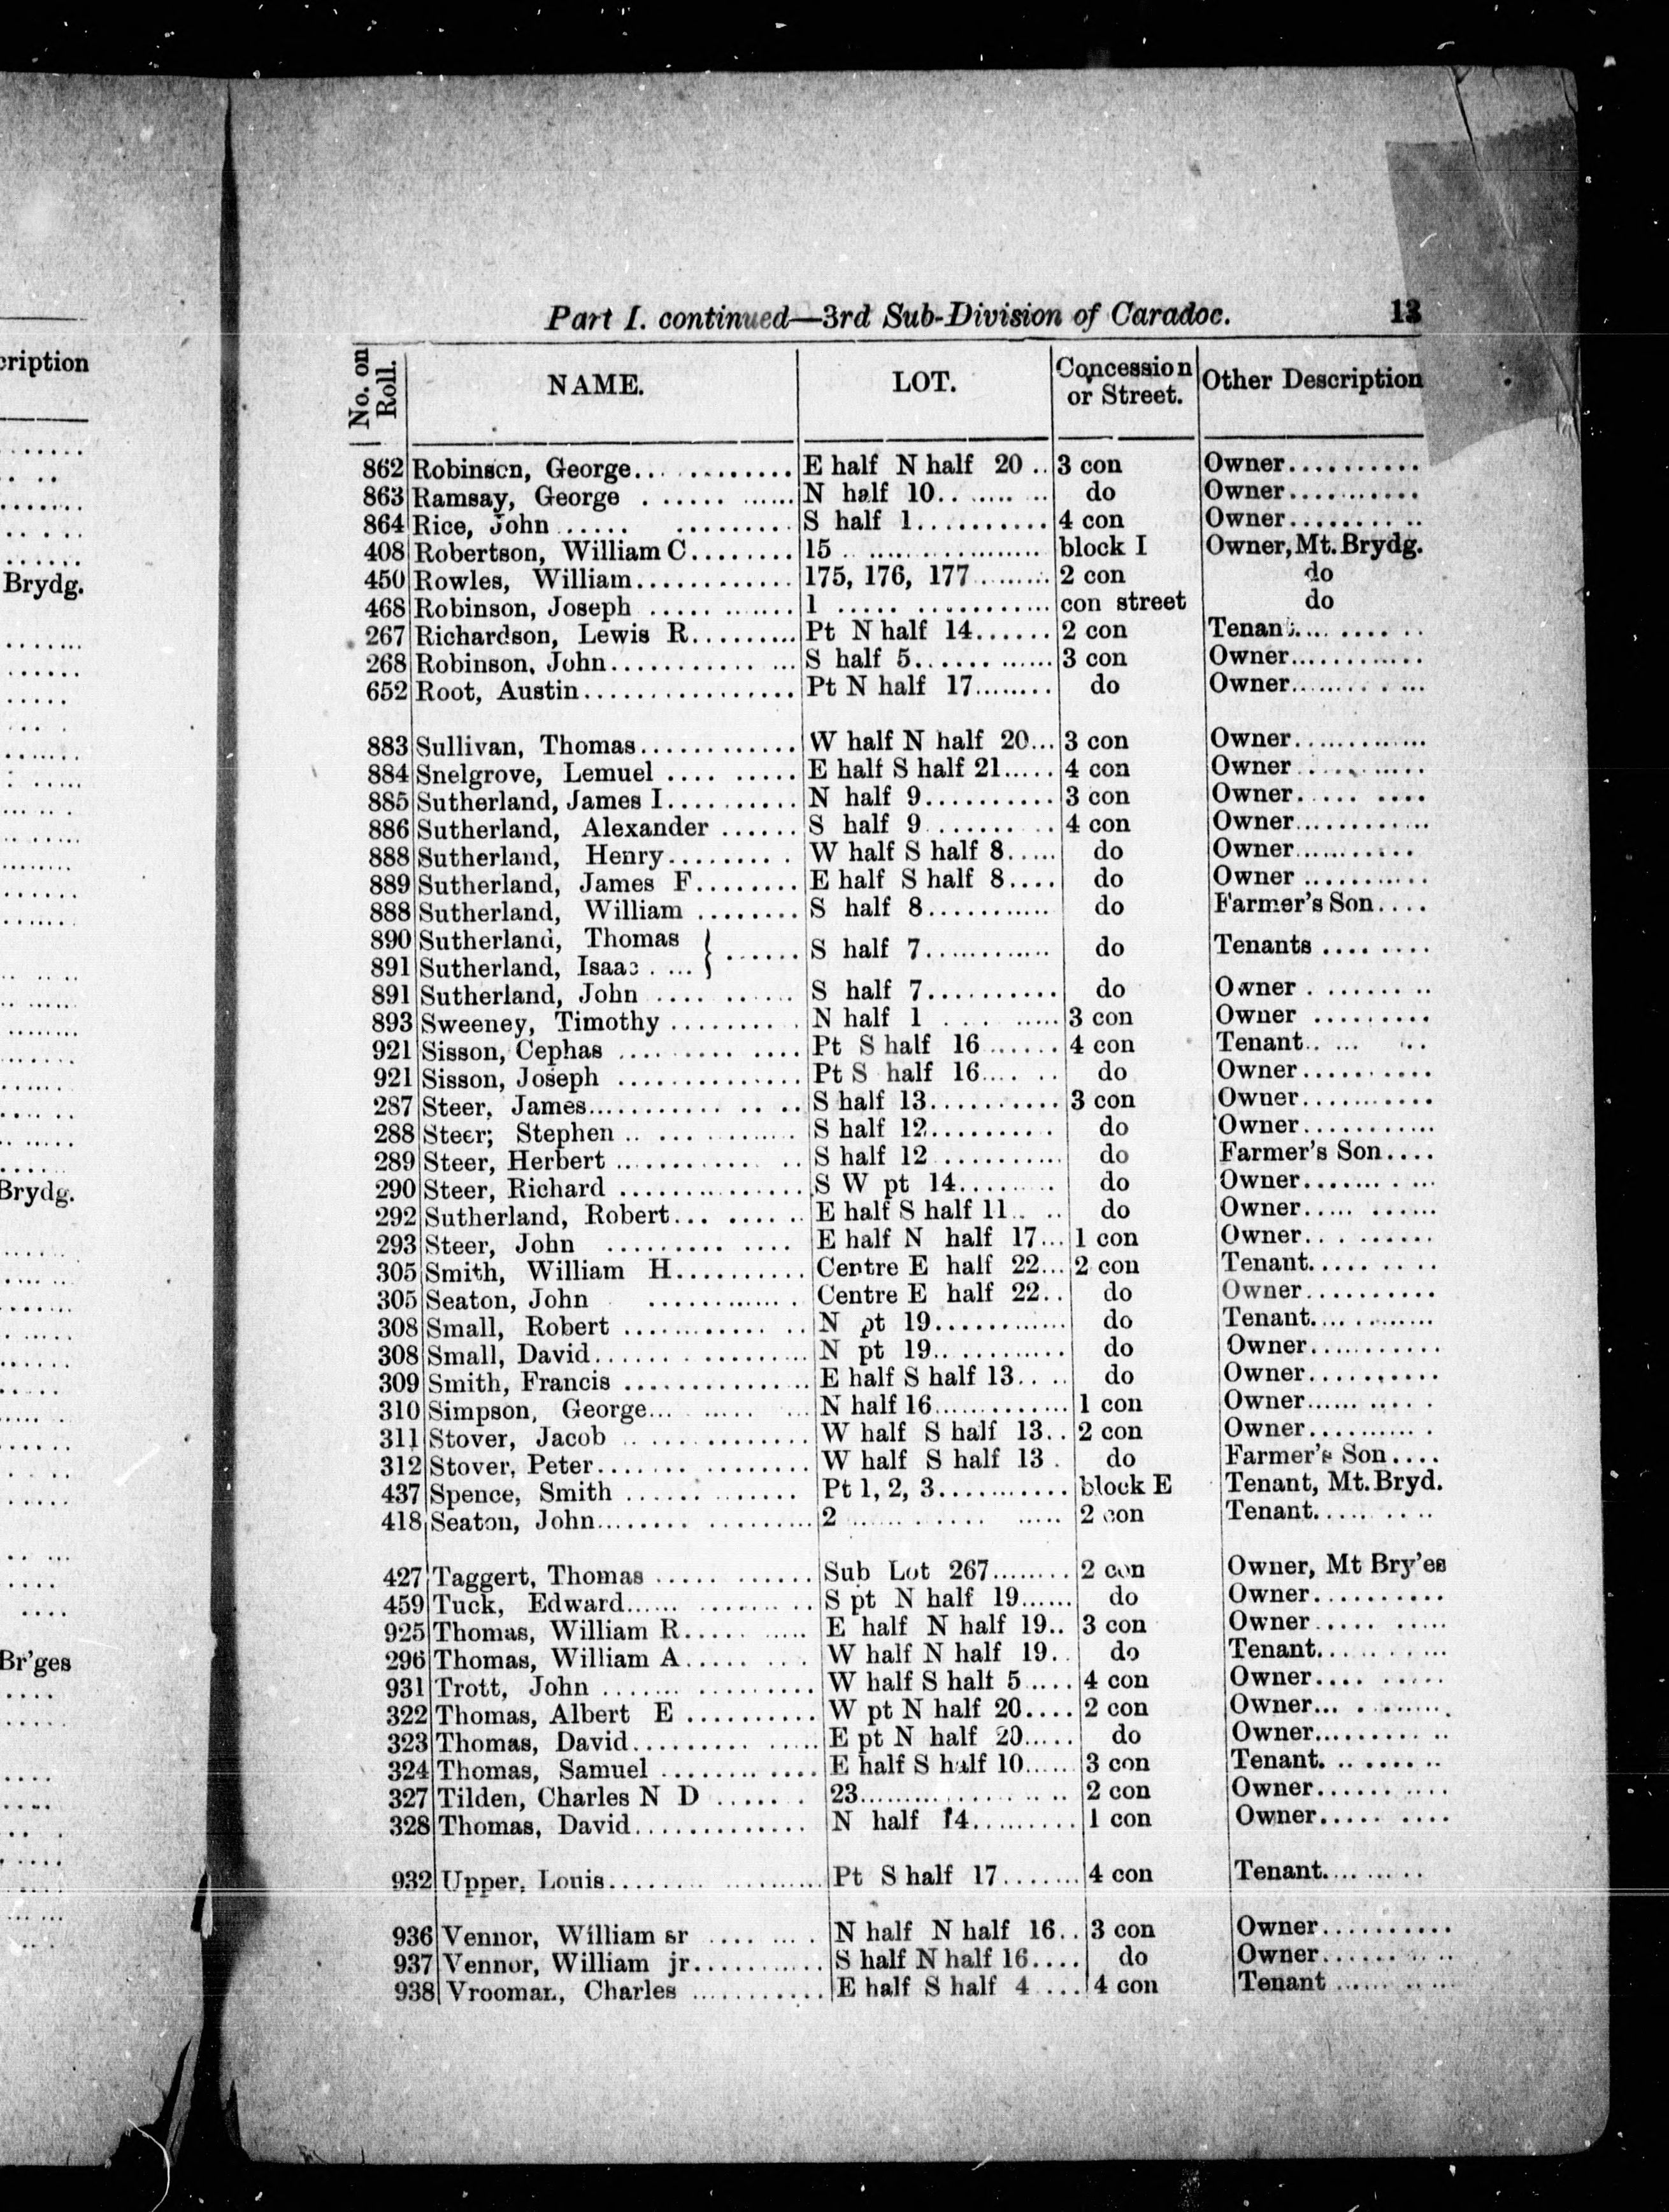 cription
Brydg.
Brydg.
Br'ges
Part I. continued—3rd Sub-Division of Caradoc. 13
No. on Roll. NAME. LOT. Concession or Street. Other Description
862 Robinson, George............ E half N half 20.. 3 con Owner..........
863 Ramsay, George ............ N half 10.......... do Owner...........
864 Rice, John ............... S half 1.......... 4 con Owner..........
408 Robertson, William C........ 15 .................. block I Owner, Mt. Brydg.
450 Rowles, William............ 175, 176, 177........ 2 con do
468 Robinson, Joseph ............ 1 .................. con street do
267 Richardson, Lewis R......... Pt N half 14...... 2 con Tenant..........
268 Robinson, John............... S half 5............ 3 con Owner...........
652 Root, Austin................ Pt N half 17........ do Owner...........
883 Sullivan, Thomas............ W half N half 20... 3 con Owner............
884 Snelgrove, Lemuel .......... E half S half 21..... 4 con Owner...........
885 Sutherland, James I.......... N half 9.......... 3 con Owner..........
886 Sutherland, Alexander ...... S half 9.......... 4 con Owner............
888 Sutherland, Henry.......... W half S half 8..... do Owner..........
889 Sutherland, James F........ E half S half 8.... do Owner ...........
888 Sutherland, William ........ S half 8........... do Farmer's Son....
890 Sutherland, Thomas } ...... S half 7............ do Tenants ........
891 Sutherland, Isaac .... }
891 Sutherland, John .......... S half 7.......... do Owner .........
893 Sweeney, Timothy .......... N half 1 .......... 3 con Owner .........
921 Sisson, Cephas ............ Pt S half 16...... 4 con Tenant.......
921 Sisson, Joseph .............. Pt S half 16...... do Owner..........
287 Steer, James................ S half 13.......... 3 con Owner...........
288 Steer; Stephen ............ S half 12.......... do Owner...........
289 Steer, Herbert .............. S half 12 ........... do Farmer's Son....
290 Steer, Richard .............. S W pt 14......... do Owner...........
292 Sutherland, Robert.......... E half S half 11.... do Owner...........
293 Steer, John ............. E half N half 17... 1 con Owner..........
305 Smith, William H.......... Centre E half 22... 2 con Tenant.........
305 Seaton, John ............ Centre E half 22.. do Owner..........
308 Small, Robert .............. N pt 19............ do Tenant...........
308 Small, David................ N pt 19............ do Owner...........
309 Smith, Francis .............. E half S half 13.... do Owner..........
310 Simpson, George............ N half 16............ 1 con Owner...........
311 Stover, Jacob .............. W half S half 13.. 2 con Owner...........
312 Stover, Peter................ W half S half 13. do Farmer's Son....
437 Spence, Smith ............ Pt 1, 2, 3........... block E Tenant, Mt. Bryd.
418 Seaton, John................ 2 ................ 2 con Tenant.........
427 Taggert, Thomas ............ Sub Lot 267........ 2 con Owner, Mt Bry'es
459 Tuck, Edward.............. S pt N half 19...... do Owner..........
925 Thomas, William R.......... E half N half 19.. 3 con Owner..........
296 Thomas, William A.......... W half N half 19.. do Tenant..........
931 Trott, John .............. W half S half 5.... 4 con Owner.........
322 Thomas, Albert E .......... W pt N half 20.... 2 con Owner...........
323 Thomas, David.............. E pt N half 20..... do Owner...........
324 Thomas, Samuel ............ E half S half 10..... 3 con Tenant.........
327 Tilden, Charles N D ....... 23.................. 2 con Owner...........
328 Thomas, David............. N half 14......... 1 con Owner.........
932 Upper, Louis................ Pt S half 17....... 4 con Tenant.........
936 Vennor, William sr ........ N half N half 16.. 3 con Owner..........
937 Vennor, William jr.......... S half N half 16.... do Owner..........
938 Vrooman, Charles ........... E half S half 4 ... 4 con Tenant ..........